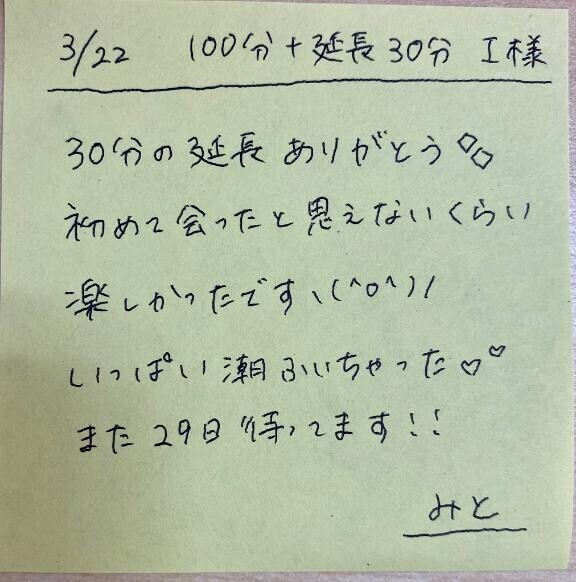 3/22 100分+延長30分 I様
30分の延長ありがとう◇◇
初めて会ったと思えないくらい
楽しかったです\(^o^)/
いっぱい潮ふいちゃった♡♡
また29日待ってます!!
みと